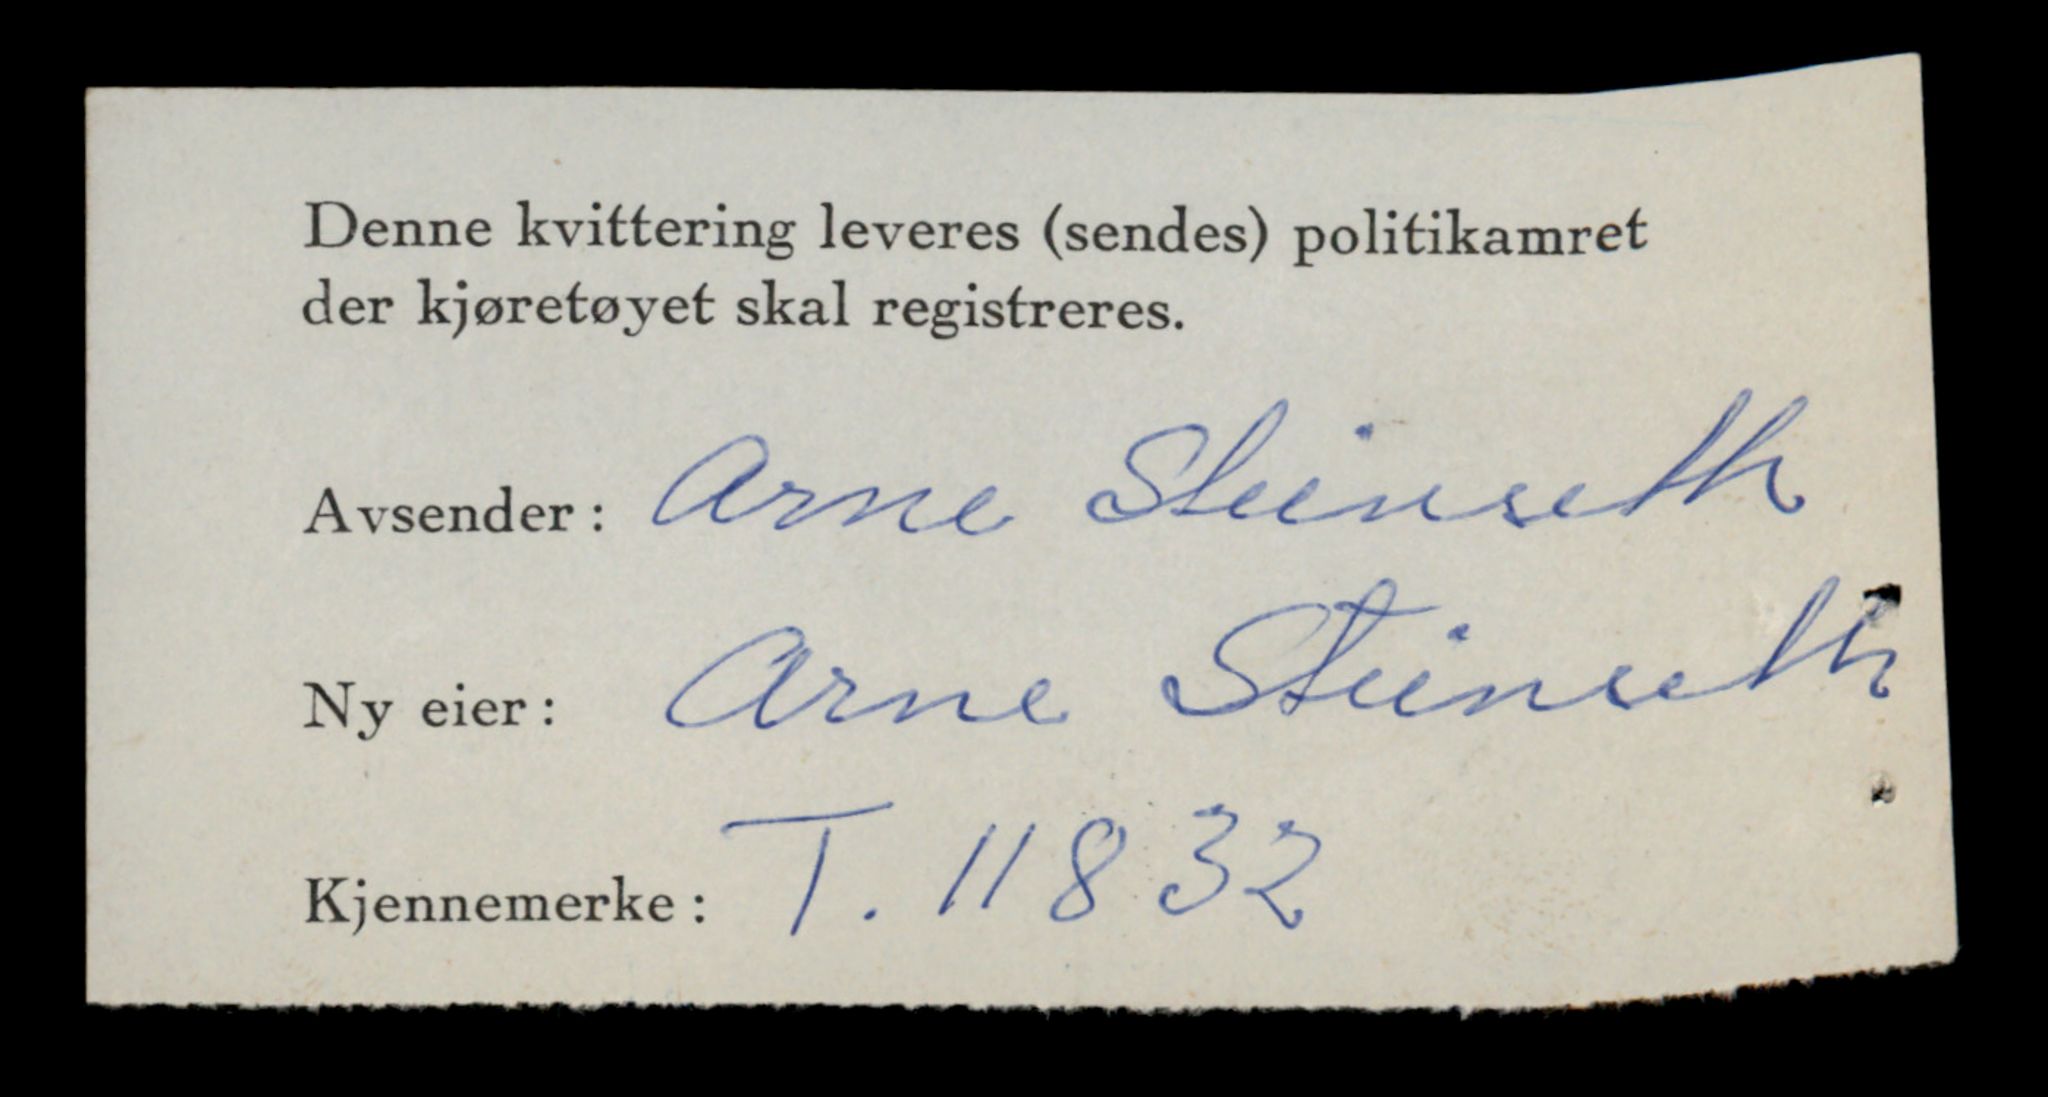 Denne kvittering leveres (sendes) politikamret
der kjøretøyet skal registreres.
Avsender: Arne Steinseth
Ny eier: Arne Steinseth
Kjennemerke: T. 11832